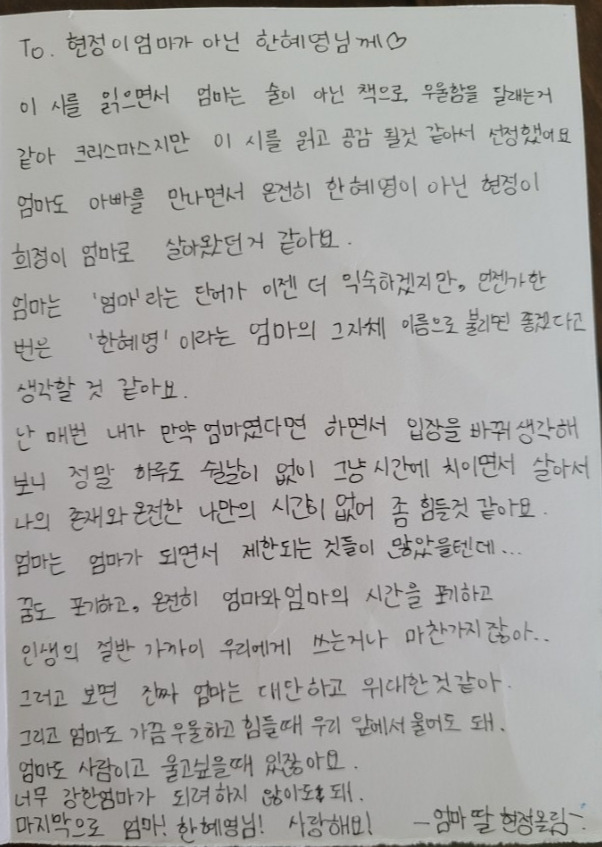 To. 현정이 엄마가 아닌 한혜영님께♡
이 시를 읽으면서 엄마는 술이 아닌 책으로, 우울함을 달래는거
같아 크리스마스지만 이 시를 읽고 공감 될것 같아서 선정했어요
엄마도 아빠를 만나면서 온전히 한혜영이 아닌 현정이
희정이 엄마로 살아왔던거 같아요.
엄마는 '엄마'라는 단어가 이젠 더 익숙하겠지만, 언젠가한
번은 '한혜영' 이라는 엄마의 그자체 이름으로 불리면 좋겠다고
생각할 것 같아요.
난 매번 내가 만약 엄마였다면 하면서 입장을 바꿔 생각해
보니 정말 하루도 쉴날이 없이 그냥 시간에 치이면서 살아서
나의 존재와 온전한 나만의 시간이 없어 좀 힘들것 같아요.
엄마는 엄마가 되면서 제한되는 것들이 많았을텐데...
꿈도 포기하고, 온전히 엄마와 엄마의 시간을 포기하고
인생의 절반 가까이 우리에게 쓰는거나 마찬가지잖아..
그러고 보면 진짜 엄마는 대단하고 위대한것같아.
그리고 엄마도 가끔 우울하고 힘들때 우리 앞에서 울어도 돼.
엄마도 사람이고 울고싶을때 있잖아요.
너무 강한엄마가 되려하지 않아도 돼!
마지막으로 엄마! 한혜영님! 사랑해요! -엄마 딸 현정올림-